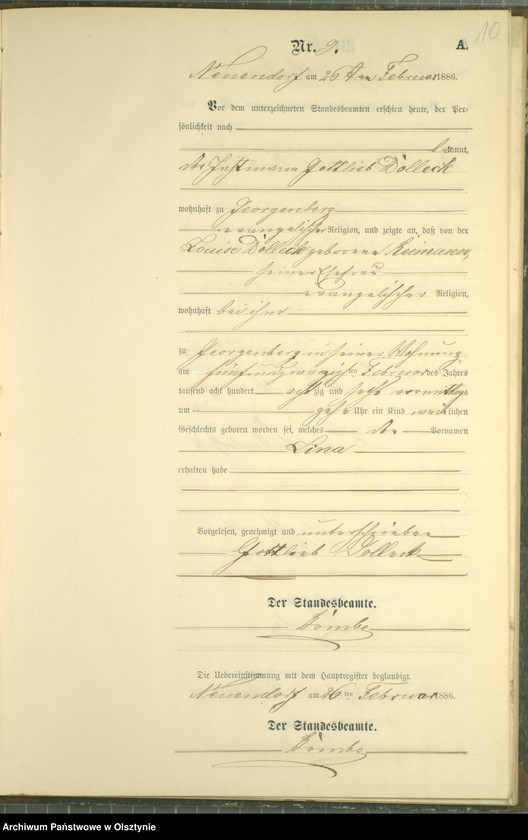 10
Nr. 9. A.
Neuendorf am 26 ten Februar 1886.
Vor dem unterzeichneten Standesbeamten erschien heute, der Per-
sönlichkeit nach
bekannt,
der Instmann Gottlieb Dolleck
wohnhaft zu Georgenberg
evangelischer Religion, und zeigte an, daß von der
Louise Dolleck geborene Reimann,
seiner Ehefrau
evangelischer Religion,
wohnhaft bei ihm
zu Georgenberg in seiner Wohnung
am fünfundzwanzigsten Februar des Jahrs
tausend acht hundert achtzig und sechs vormittags
um zehn Uhr ein Kind weiblichen
Geschlechts geboren worden sei, welches den Vornamen
Lina
erhalten habe
Vorgelesen, genehmigt und unterschrieben
Gottlieb Dolleck
Der Standesbeamte.
Die Uebereinstimmung mit dem Hauptregister beglaubigt.
Neuendorf am 26 ten Februar 1886.
Der Standesbeamte.
Archiwum Państwowe w Olsztynie